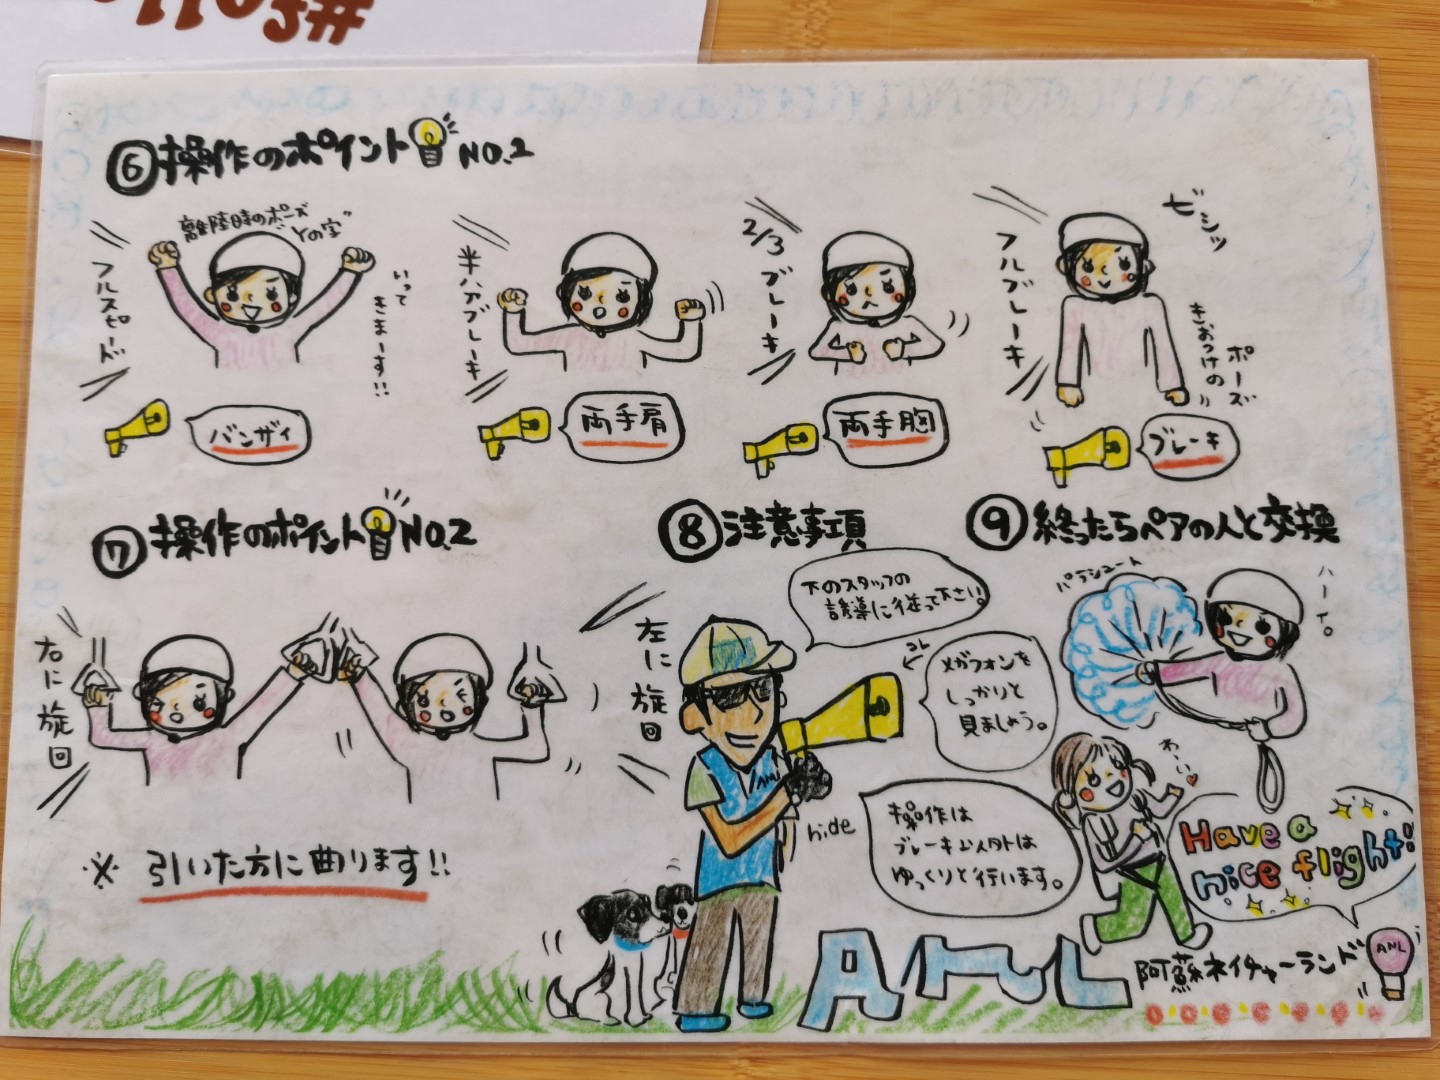 ⑥操作のポイント NO.1
離陸時のポーズ
"Yの字"
フルスピード
いって
きまーす!!
バンザイ
半ハブブレーキ
両手肩
2/3ブレーキ
両手胸
フルブレーキ
ビシッ
きおつけの
ポーズ
ブレーキ
⑦操作のポイント NO.2
右に旋回
左に旋回
※引いた方に曲ります!!
⑧注意事項
下のスタッフの
誘導に従って下さい。
コレ
メガフォンを
しっかりと
見ましょう。
操作は
ブレーキ以外は
ゆっくりと行います。
hide
ANL
⑨終ったらペアの人と交換
パラシュート
ハーイ。
わーい
Have a
nice flight!
ANL
阿蘇ネイチャーランド
ANL